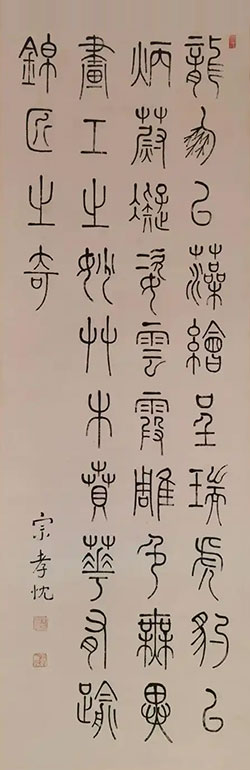 龍鳳以藻繪呈瑞虎豹以
炳蔚凝姿雲霞雕色無異
畫工之妙艸木賁華有踰
錦匠之奇
宗孝忱